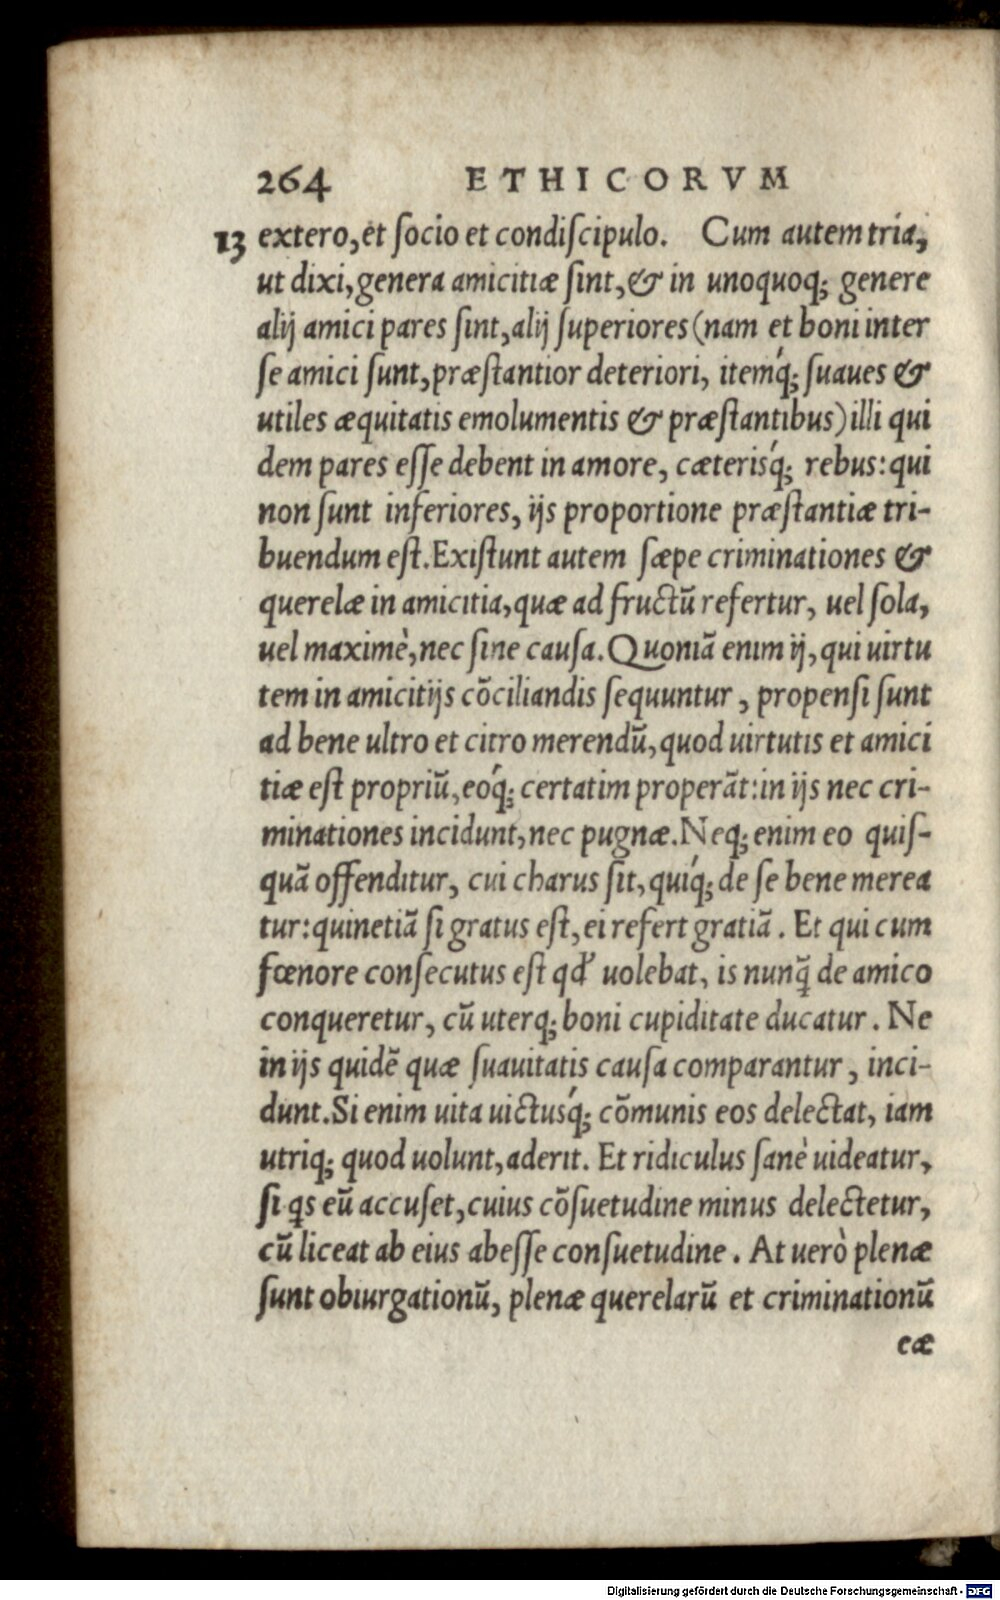 264 ETHICORVM
13 extero, et socio et condiscipulo. Cum autem tria,
ut dixi, genera amicitiæ sint, & in unoquoq; genere
alij amici pares sint, alij superiores (nam et boni inter
se amici sunt, præstantior deteriori, itemq́; suaues &
utiles æquitatis emolumentis & præstantibus) illi qui
dem pares esse debent in amore, cæterisq́; rebus: qui
non sunt inferiores, ijs proportione præstantiæ tri-
buendum est. Existunt autem sæpe criminationes &
querelæ in amicitia, quæ ad fructū refertur, uel sola,
uel maximè, nec sine causa. Quoniā enim ij, qui uirtu
tem in amicitijs cōciliandis sequuntur, propensi sunt
ad bene ultro et citro merendū, quod uirtutis et amici
tiæ est propriū, eoq́; certatim properāt: in ijs nec cri-
minationes incidunt, nec pugnæ. Neq; enim eo quis-
quā offenditur, cui charus sit, quiq́; de se bene merea
tur: quinetiā si gratus est, ei refert gratiā. Et qui cum
fœnore consecutus est qd' uolebat, is nunq̄ de amico
conqueretur, cū uterq; boni cupiditate ducatur. Ne
in ijs quidē quæ suauitatis causa comparantur, inci-
dunt. Si enim uita uictusq́; cōmunis eos delectat, iam
utriq; quod uolunt, aderit. Et ridiculus sanè uideatur,
si qs eū accuset, cuius cōsuetudine minus delectetur,
cū liceat ab eius abesse consuetudine. At uerò plenæ
sunt obiurgationū, plenæ querelarū et criminationū
eæ
Digitalisierung gefördert durch die Deutsche Forschungsgemeinschaft - DFG